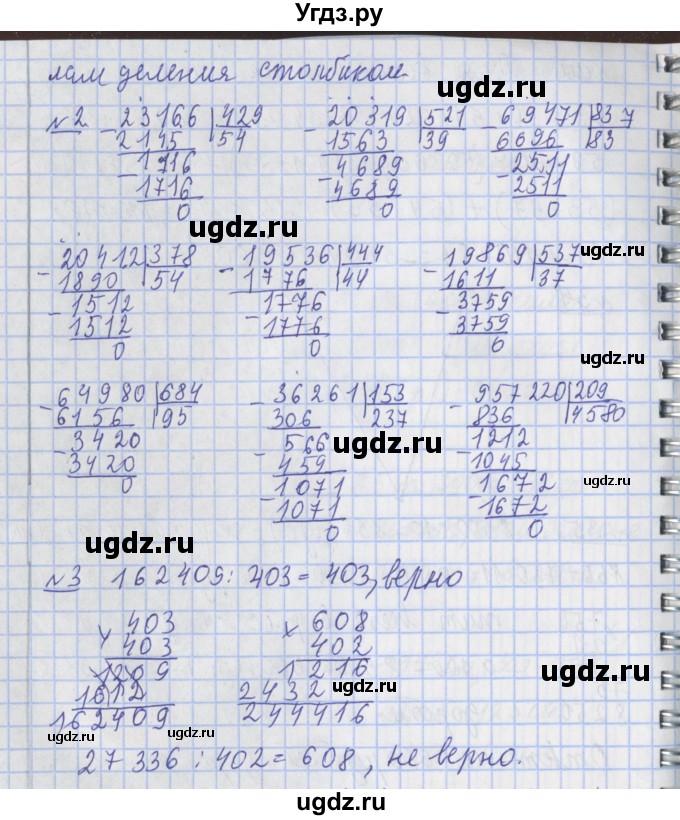 Угдз.ру
лам деления столбиком.
ugdz.ru ugdz.ru
№2 -23166|429 -20319|521 -69471|837
2145 |54 1563 |39 6696 |83
-1716 -4689 -2511
1716 4689 2511
0 0 0
ugdz.ru ugdz.ru
-20412|378 -19536|444 -19869|537
1890 |54 1776 |44 1611 |37
-1512 -1776 -3759
1512 1776 3759
0 0 0
ugdz.ru ugdz.ru
-64980|684 -36261|153 -957220|209
6156 |95 306 |237 836 |4580
-3420 -566 -1212
3420 459 1045
0 -1071 -1672
1071 1672
0 0
ugdz.ru ugdz.ru ugdz.ru
№3 162409 : 403 = 403, верно
×403 ×608
403 402
1209 1216
1612 2432
162409 244416
ugdz.ru ugdz.ru ugdz.ru ugdz.ru
27336 : 402 = 608, не верно.
ugdz.ru